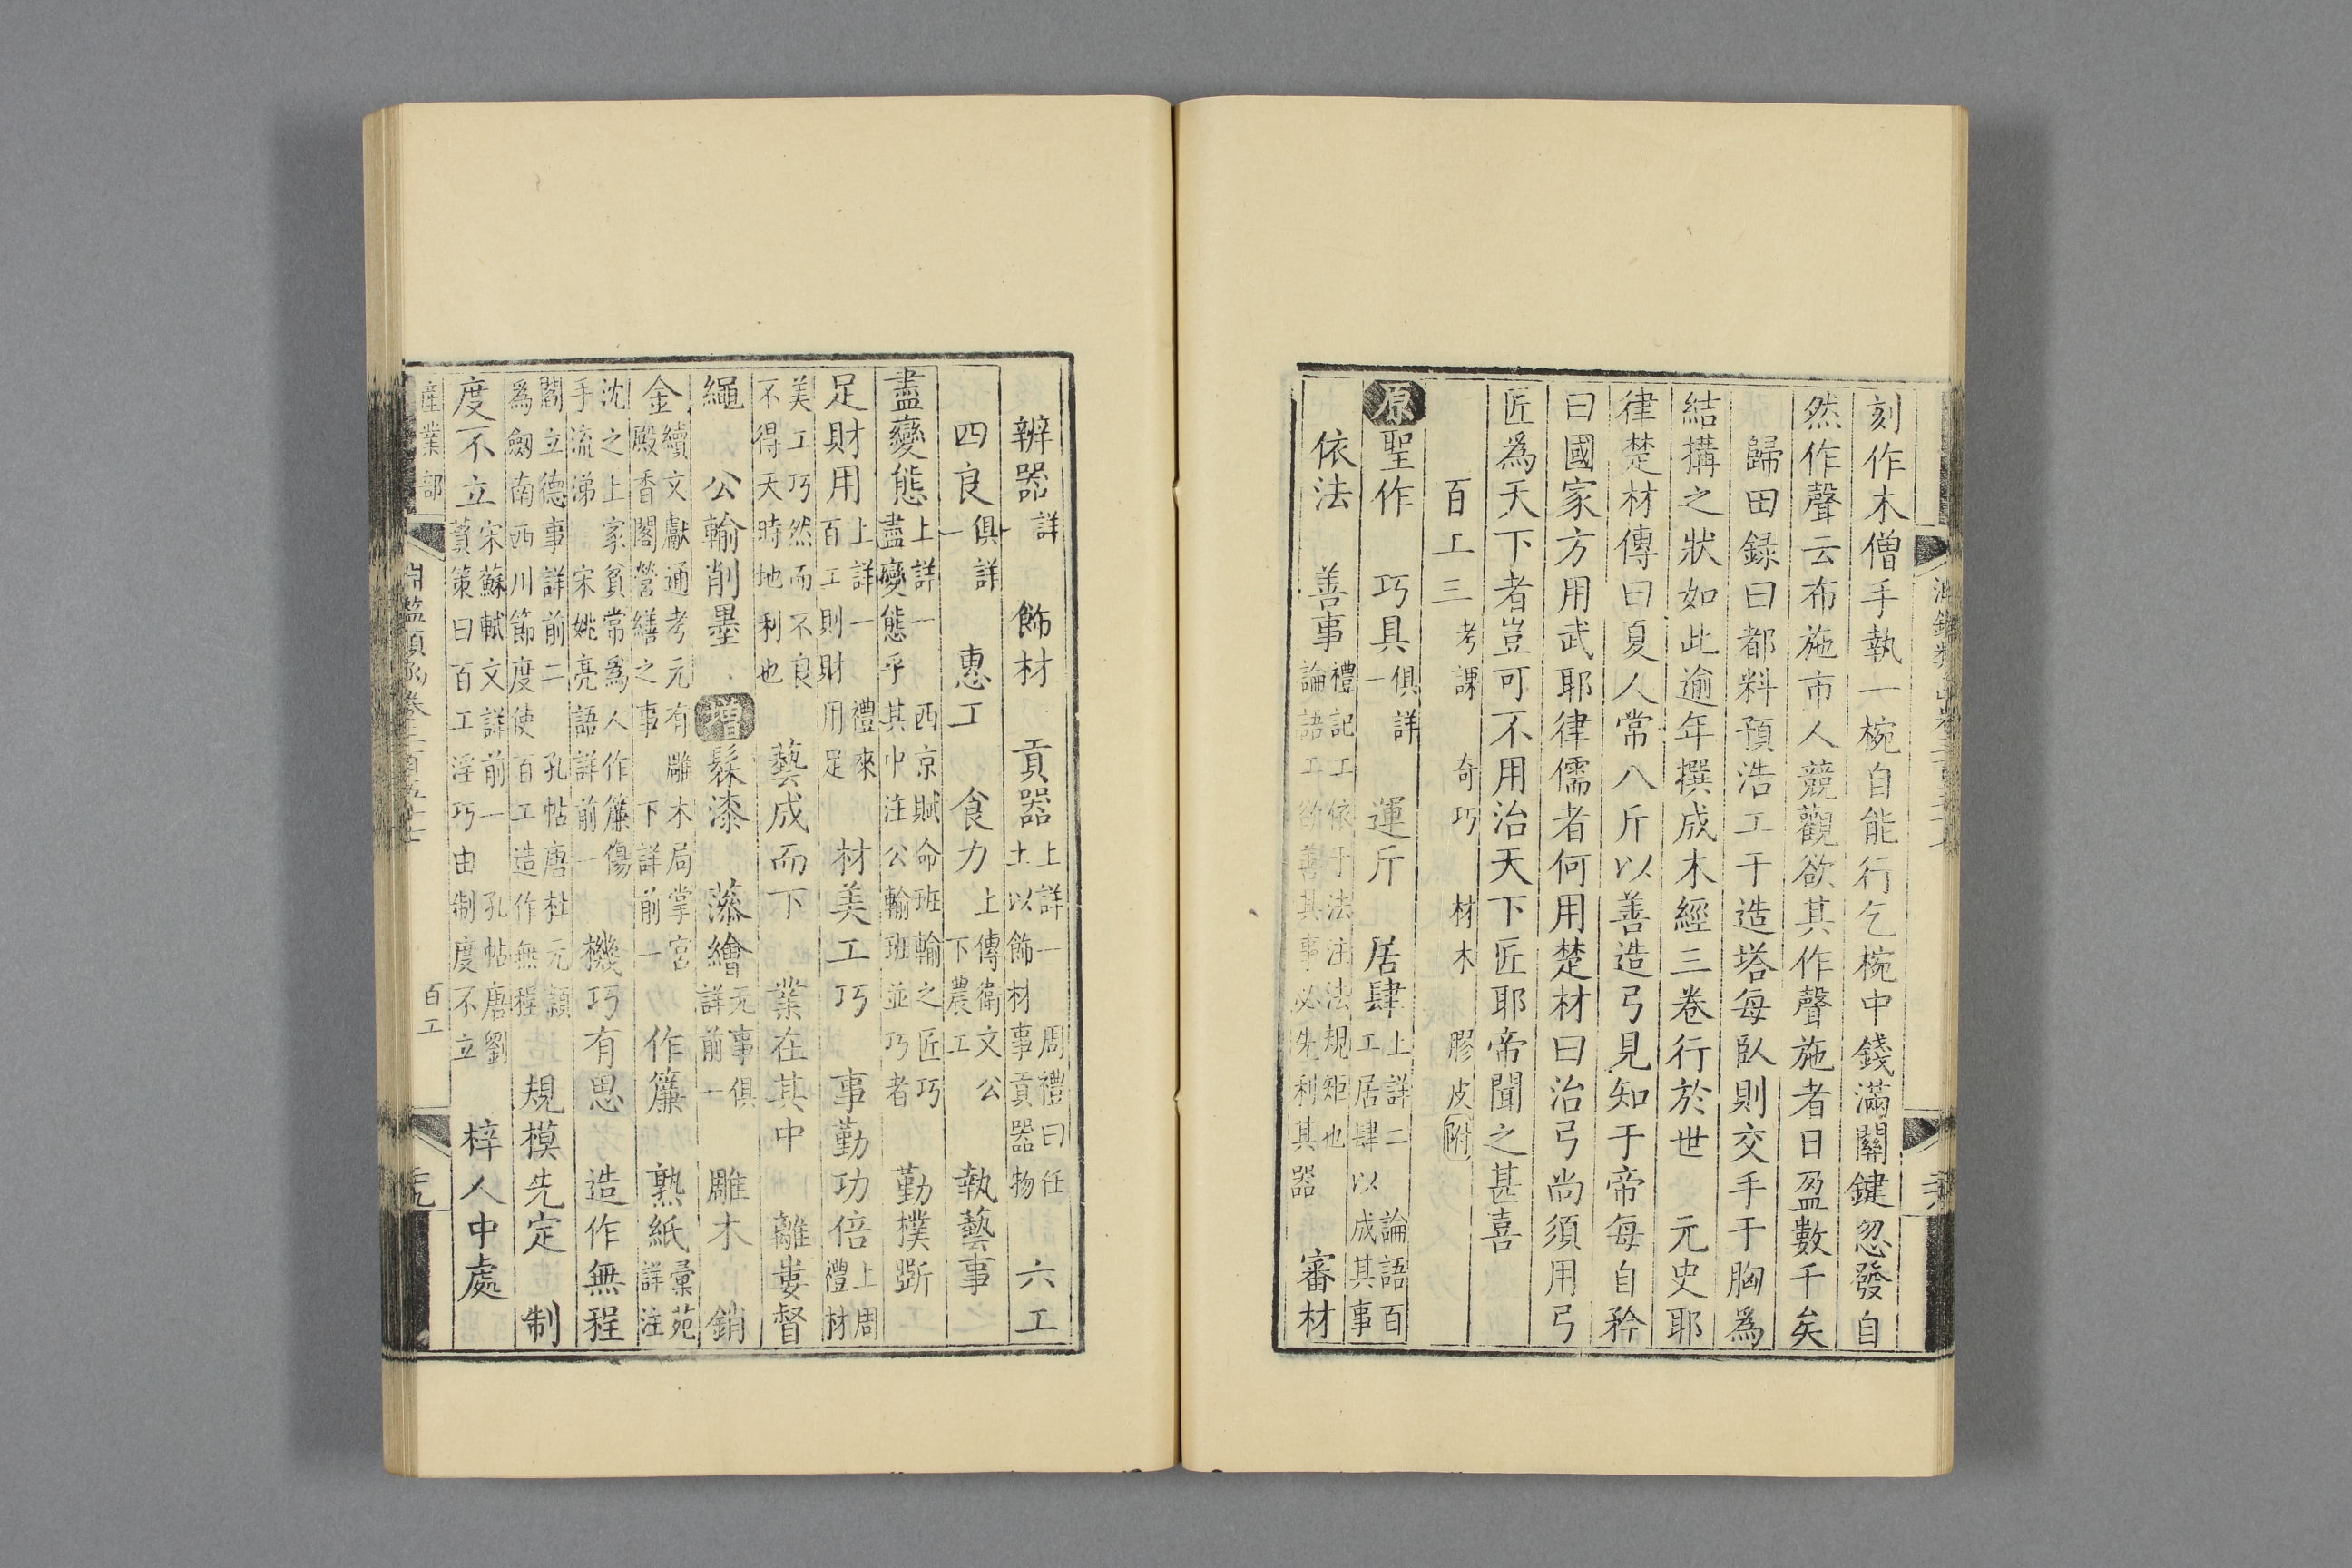 刻作木僧手執一椀自能行乞椀中錢滿關鍵忽發自
然作聲云布施市人競觀欲其作聲施者日盈數千矣
歸田録曰都料預浩工于造塔每臥則交手于胸爲
結搆之狀如此逾年撰成木經三卷行於世　元史耶
律楚材傳曰夏人常八斤以善造弓見知于帝每自矜
曰國家方用武耶律儒者何用楚材曰治弓尚須用弓
匠爲天下者豈可不用治天下匠耶帝聞之甚喜
百工三　考課　奇巧　材木　膠皮附
原聖作　巧具俱詳一　運斤　居肆上詳二　論語百工居肆以成其事
依法　善事禮記工依于法注法規矩也論語工欲善其事必先利其器　審材
辨器詳一　飾材　貢器上詳一　周禮曰任土以飾材事貢器物　六工
四良俱詳一　惠工　食力上傳衛文公下農工　執藝事
盡變態上詳一　西京賦命班輸之匠巧盡變態乎其中注公輸班並巧者　勤樸斲
足財用上詳一　禮來百工則財用足　材美工巧　事勤功倍上周禮材
美工巧然而不良不得天時地利也　藝成而下　業在其中　離婁督
繩　公輸削墨　增髹漆　藻繪无事俱詳前一　雕木　銷
金續文獻通考元有雕木局掌宮殿香閣營繕之事　下詳前一　作簾　熟紙彙苑詳注
沈之上家貧常爲人作簾傷手流涕　宋姚亮語詳前一　機巧有思　造作無程
閻立德事詳前二　孔帖唐杜元穎爲劔南西川節度使百工造作無程　規模先定　制
度不立宋蘇軾文詳前一　孔帖唐劉蕡策曰百工淫巧由制度不立　梓人中處
產業部
百工